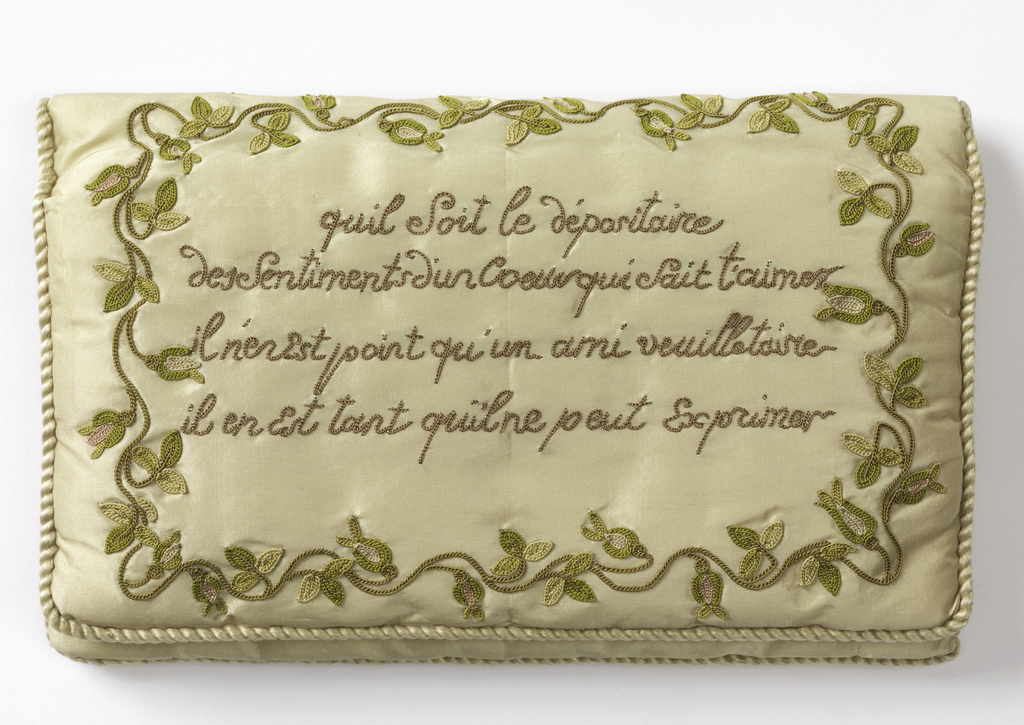 quil Soit le dépositaire
des Sentiments d'un Coeur qui Sait t'aimer
il n'en Est point qu'un ami veuille taire
il en Est tant quil ne peut Exprimer